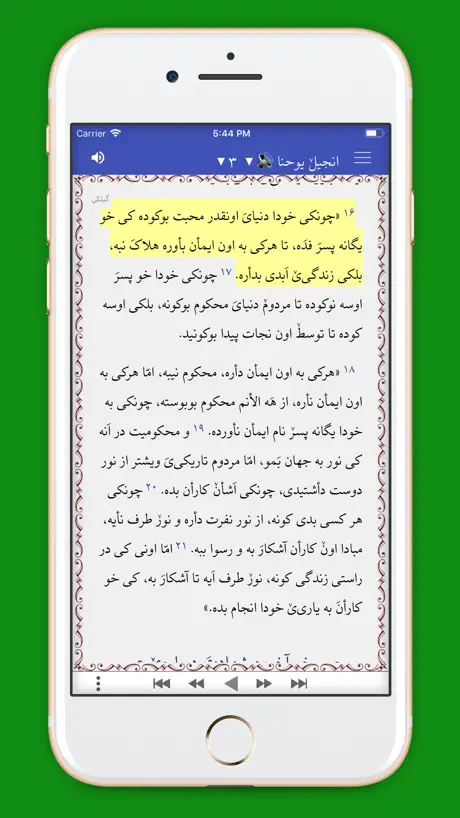 Carrier
5:44 PM
انجیلˇ یوحنا ▼ ۳ ▼
گیلکی
۱۶ «چونکی خودا دنیایَ اونقدر محبت بوکوده کی خو
یگانه پسرَ فدَه، تا هرکی به اون ایمأن بأوره هلاکَ نبه،
بلکی زندگیˇ اَبدی بدأره. ۱۷ چونکی خودا خو پسرَ
اوسه نوکوده تا مردومˇ دنیایَ محکوم بوکونه، بلکی اوسه
کوده تا توسطˇ اون نجات پیدا بوکونید.
۱۸ «هرکی به اون ایمأن دأره، محکوم نیبه، امّا هرکی به
اون ایمأن نأره، از هَه الأنم محکوم بوبوسته، چونکی به
خودا یگانه پسرˇ نام ایمأن نأورده. ۱۹ و محکومیت در اَنه
کی نور به جهان بَمو، امّا مردوم تاریکیَ ویشتر از نور
دوست دأشتیدی، چونکی اَشأنˇ کارأن بده. ۲۰ چونکی
هر کسی بدی کونه، از نور نفرت دأره و نورˇ طرف نأیه،
مبادا اونˇ کارأن آشکارَ به و رسوا ببه. ۲۱ امّا اونی کی در
راستی زندگی کونه، نورˇ طرف اَیه تا آشکارَ به، کی خو
کارأنَ به یاریˇ خودا انجام بده.»